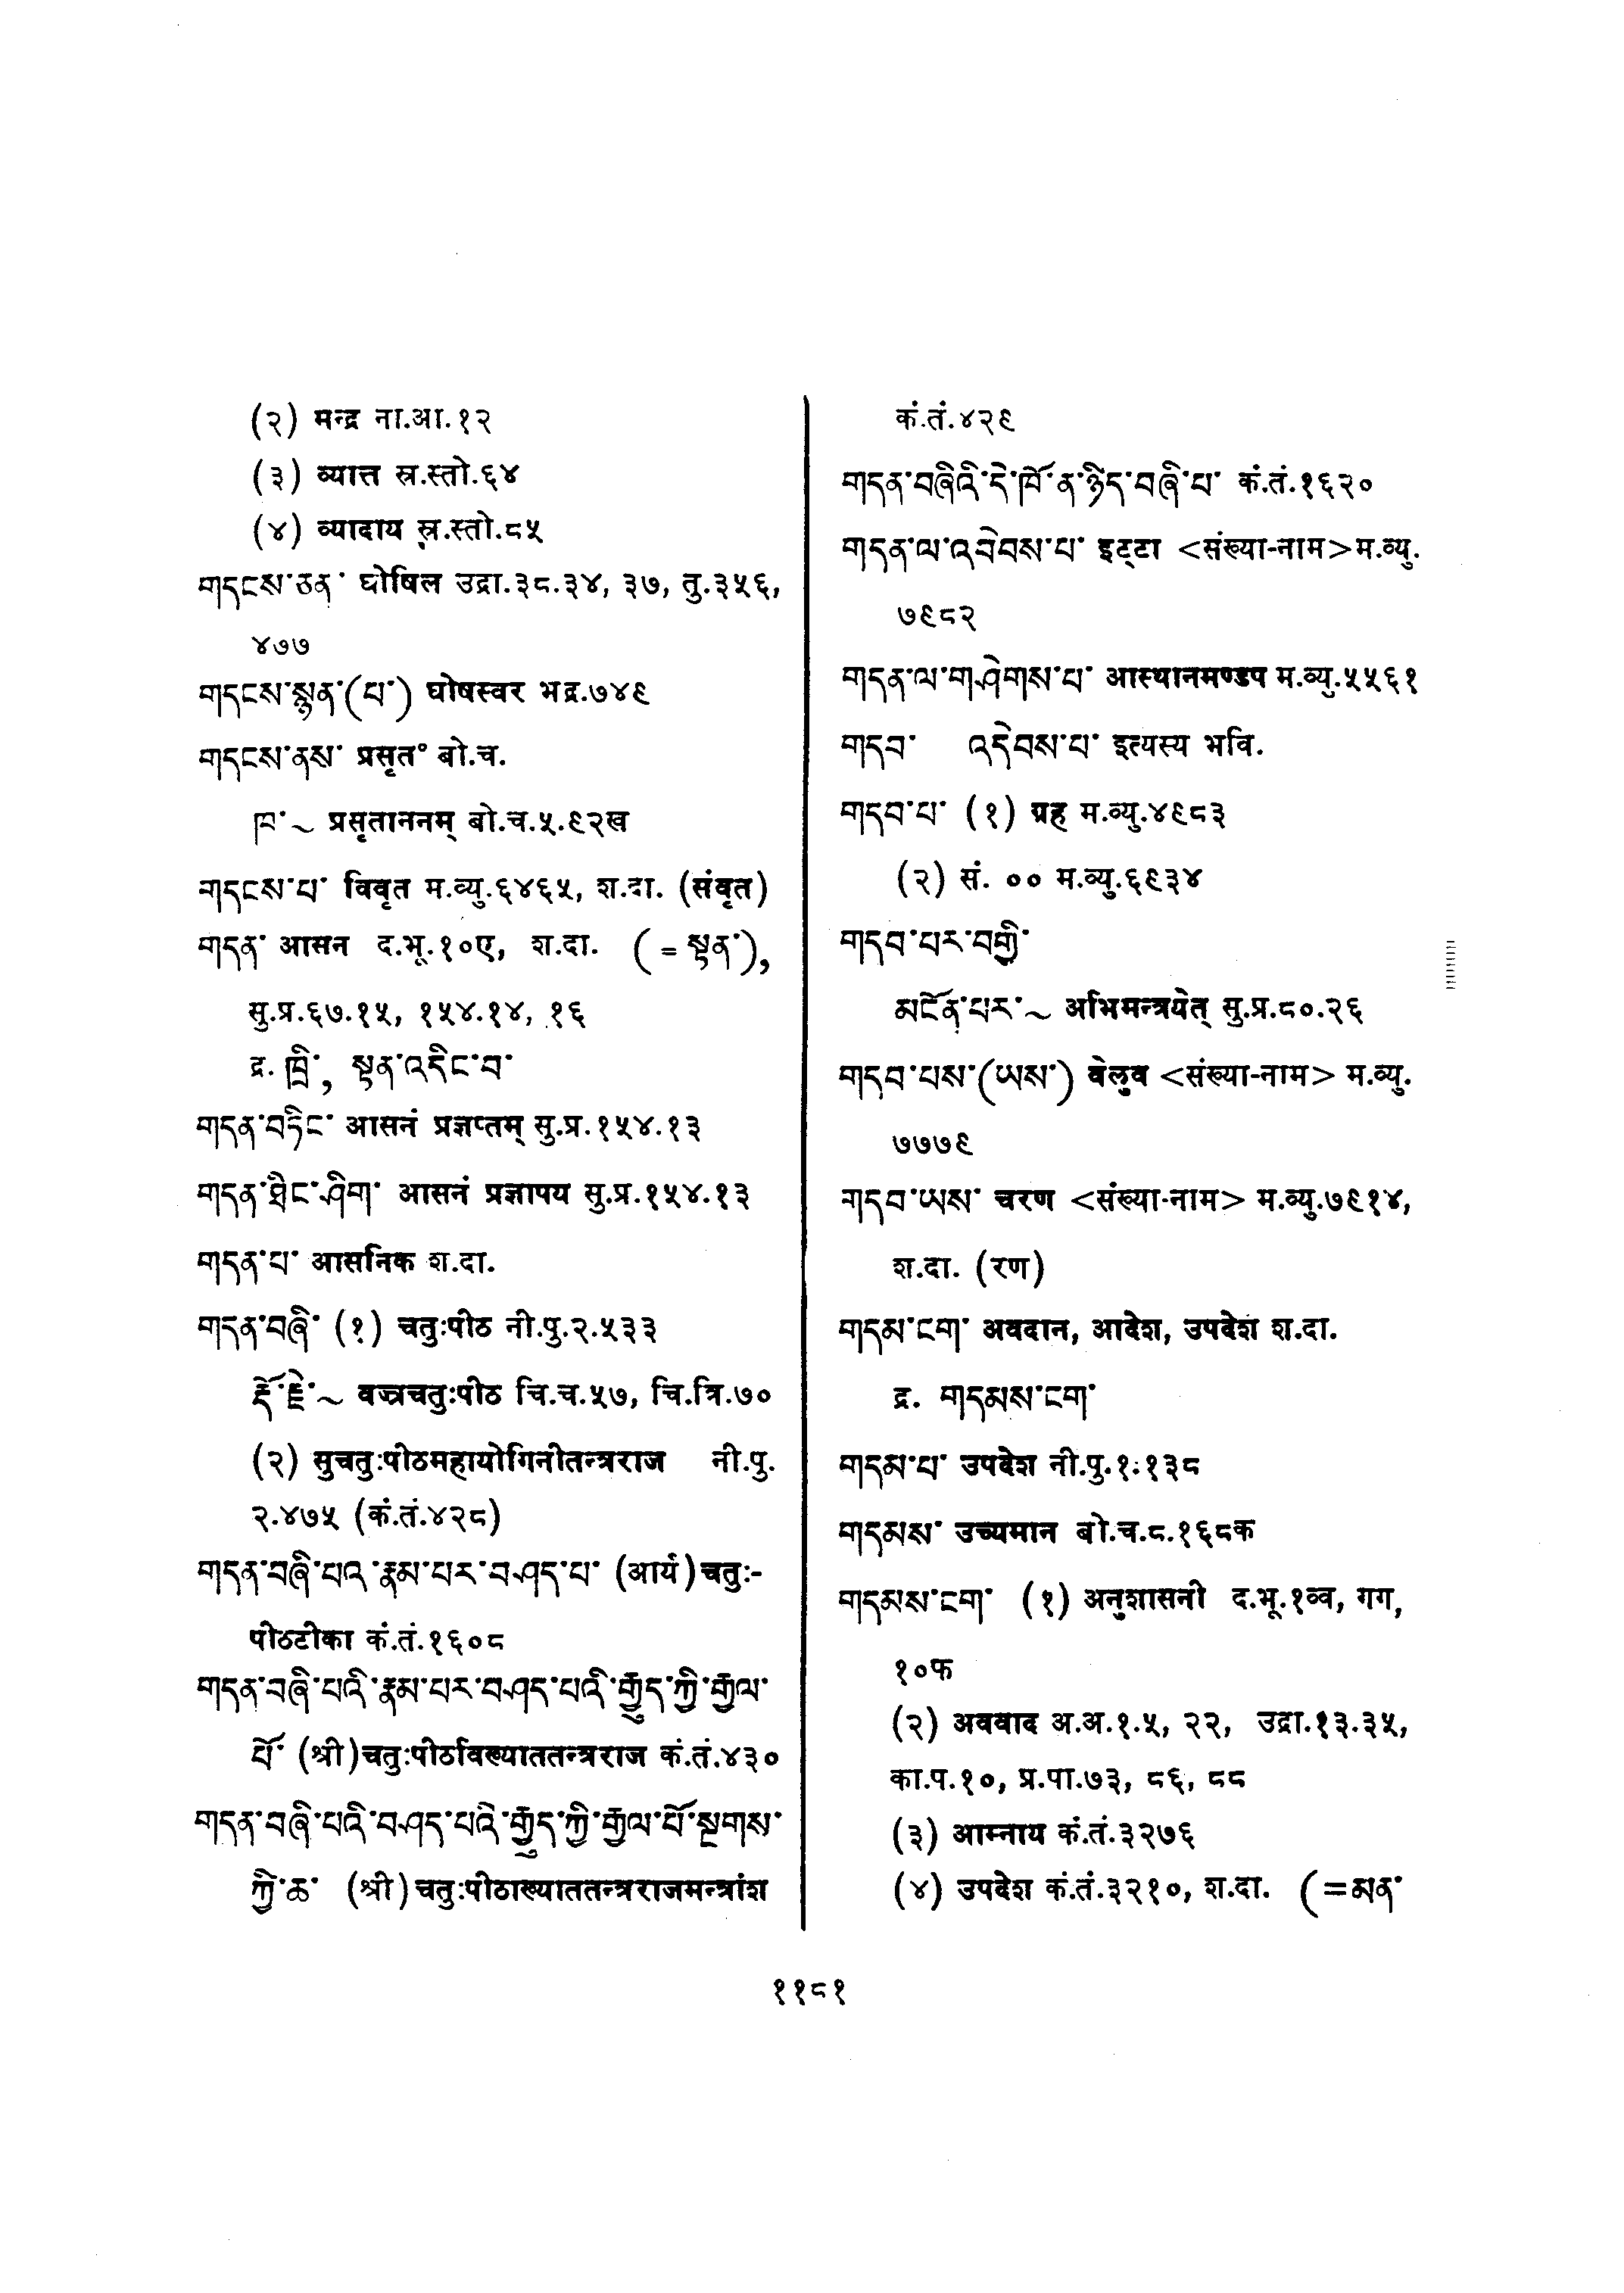 (२) मन्द्र ना.आ.१२
(३) व्यात्त स्र.स्तो.६४
(४) व्यादाय स्र.स्तो.८५
གདངས་ཅན་ घोषिल उद्रा.३८.३४, ३७, तु.३५६,
४७७
གདངས་སྙན་(པ་) घोषस्वर भद्र.७४९
གདངས་ནས་ प्रसृत° बो.च.
ཁ་~ प्रसृताननम् बो.च.५.९२ख
གདངས་པ་ विवृत म.व्यु.६४६५, श.दा. (संवृत)
གདན་ आसन द.भू.१०ए, श.दा. (=སྟན་),
सु.प्र.६७.१५, १५४.१४, १६
द्र. ཁྲི་, སྟན་འདིང་བ་
གདན་བཏིང་ आसनं प्रज्ञप्तम् सु.प्र.१५४.१३
གདན་ཐིང་ཤིག་ आसनं प्रज्ञापय सु.प्र.१५४.१३
གདན་པ་ आसनिक श.दा.
གདན་བཞི་ (१) चतुःपीठ नी.पु.२.५३३
རྡོ་རྗེ་~ वज्रचतुःपीठ चि.च.५७, चि.त्रि.७०
(२) सुचतुःपीठमहायोगिनीतन्त्रराज नी.पु.
२.४७५ (कं.तं.४२८)
གདན་བཞི་པའ་རྣམ་པར་བཤད་པ་ (आर्य)चतुः-
पीठटीका कं.तं.१६०८
གདན་བཞི་པའི་རྣམ་པར་བཤད་པའི་རྒྱུད་ཀྱི་རྒྱལ་
པོ་ (श्री)चतुःपीठविख्याततन्त्रराज कं.तं.४३०
གདན་བཞི་པའི་བཤད་པའི་རྒྱུད་ཀྱི་རྒྱལ་པོ་སྔགས་
ཀྱི་ཆ་ (श्री)चतुःपीठाख्याततन्त्रराजमन्त्रांश
कं.तं.४२९
གདན་བཞིའི་དེ་ཁོ་ན་ཉིད་བཞི་པ་ कं.तं.१६२०
གདན་ལ་འབེབས་པ་ इट्टा <संख्या-नाम>म.व्यु.
७९८२
གདན་ལ་གཤེགས་པ་ आस्थानमण्डप म.व्यु.५५६१
གདབ་ འདེབས་པ་ इत्यस्य भवि.
གདབ་པ་ (१) ग्रह म.व्यु.४९८३
(२) सं. ०० म.व्यु.६९३४
གདབ་པར་བགྱི་
མངོན་པར་~ अभिमन्त्रयेत् सु.प्र.८०.२६
གདབ་པས་(ཡས་) वेलुव <संख्या-नाम> म.व्यु.
७७७९
གདབ་ཡས་ चरण <संख्या-नाम> म.व्यु.७९१४,
श.दा. (रण)
གདམ་ངག་ अवदान, आदेश, उपदेश श.दा.
द्र. གདམས་ངག་
གདམ་པ་ उपदेश नी.पु.१.१३८
གདམས་ उच्यमान बो.च.८.१६८क
གདམས་ངག་ (१) अनुशासनी द.भू.१व्व, गग,
१०फ
(२) अववाद अ.अ.१.५, २२, उद्रा.१३.३५,
का.प.१०, प्र.पा.७३, ८६, ८८
(३) आम्नाय कं.तं.३२७६
(४) उपदेश कं.तं.३२१०, श.दा. (=མན་
११८१